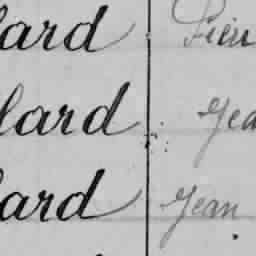 lard Pieu
lard Jea
lard Jean